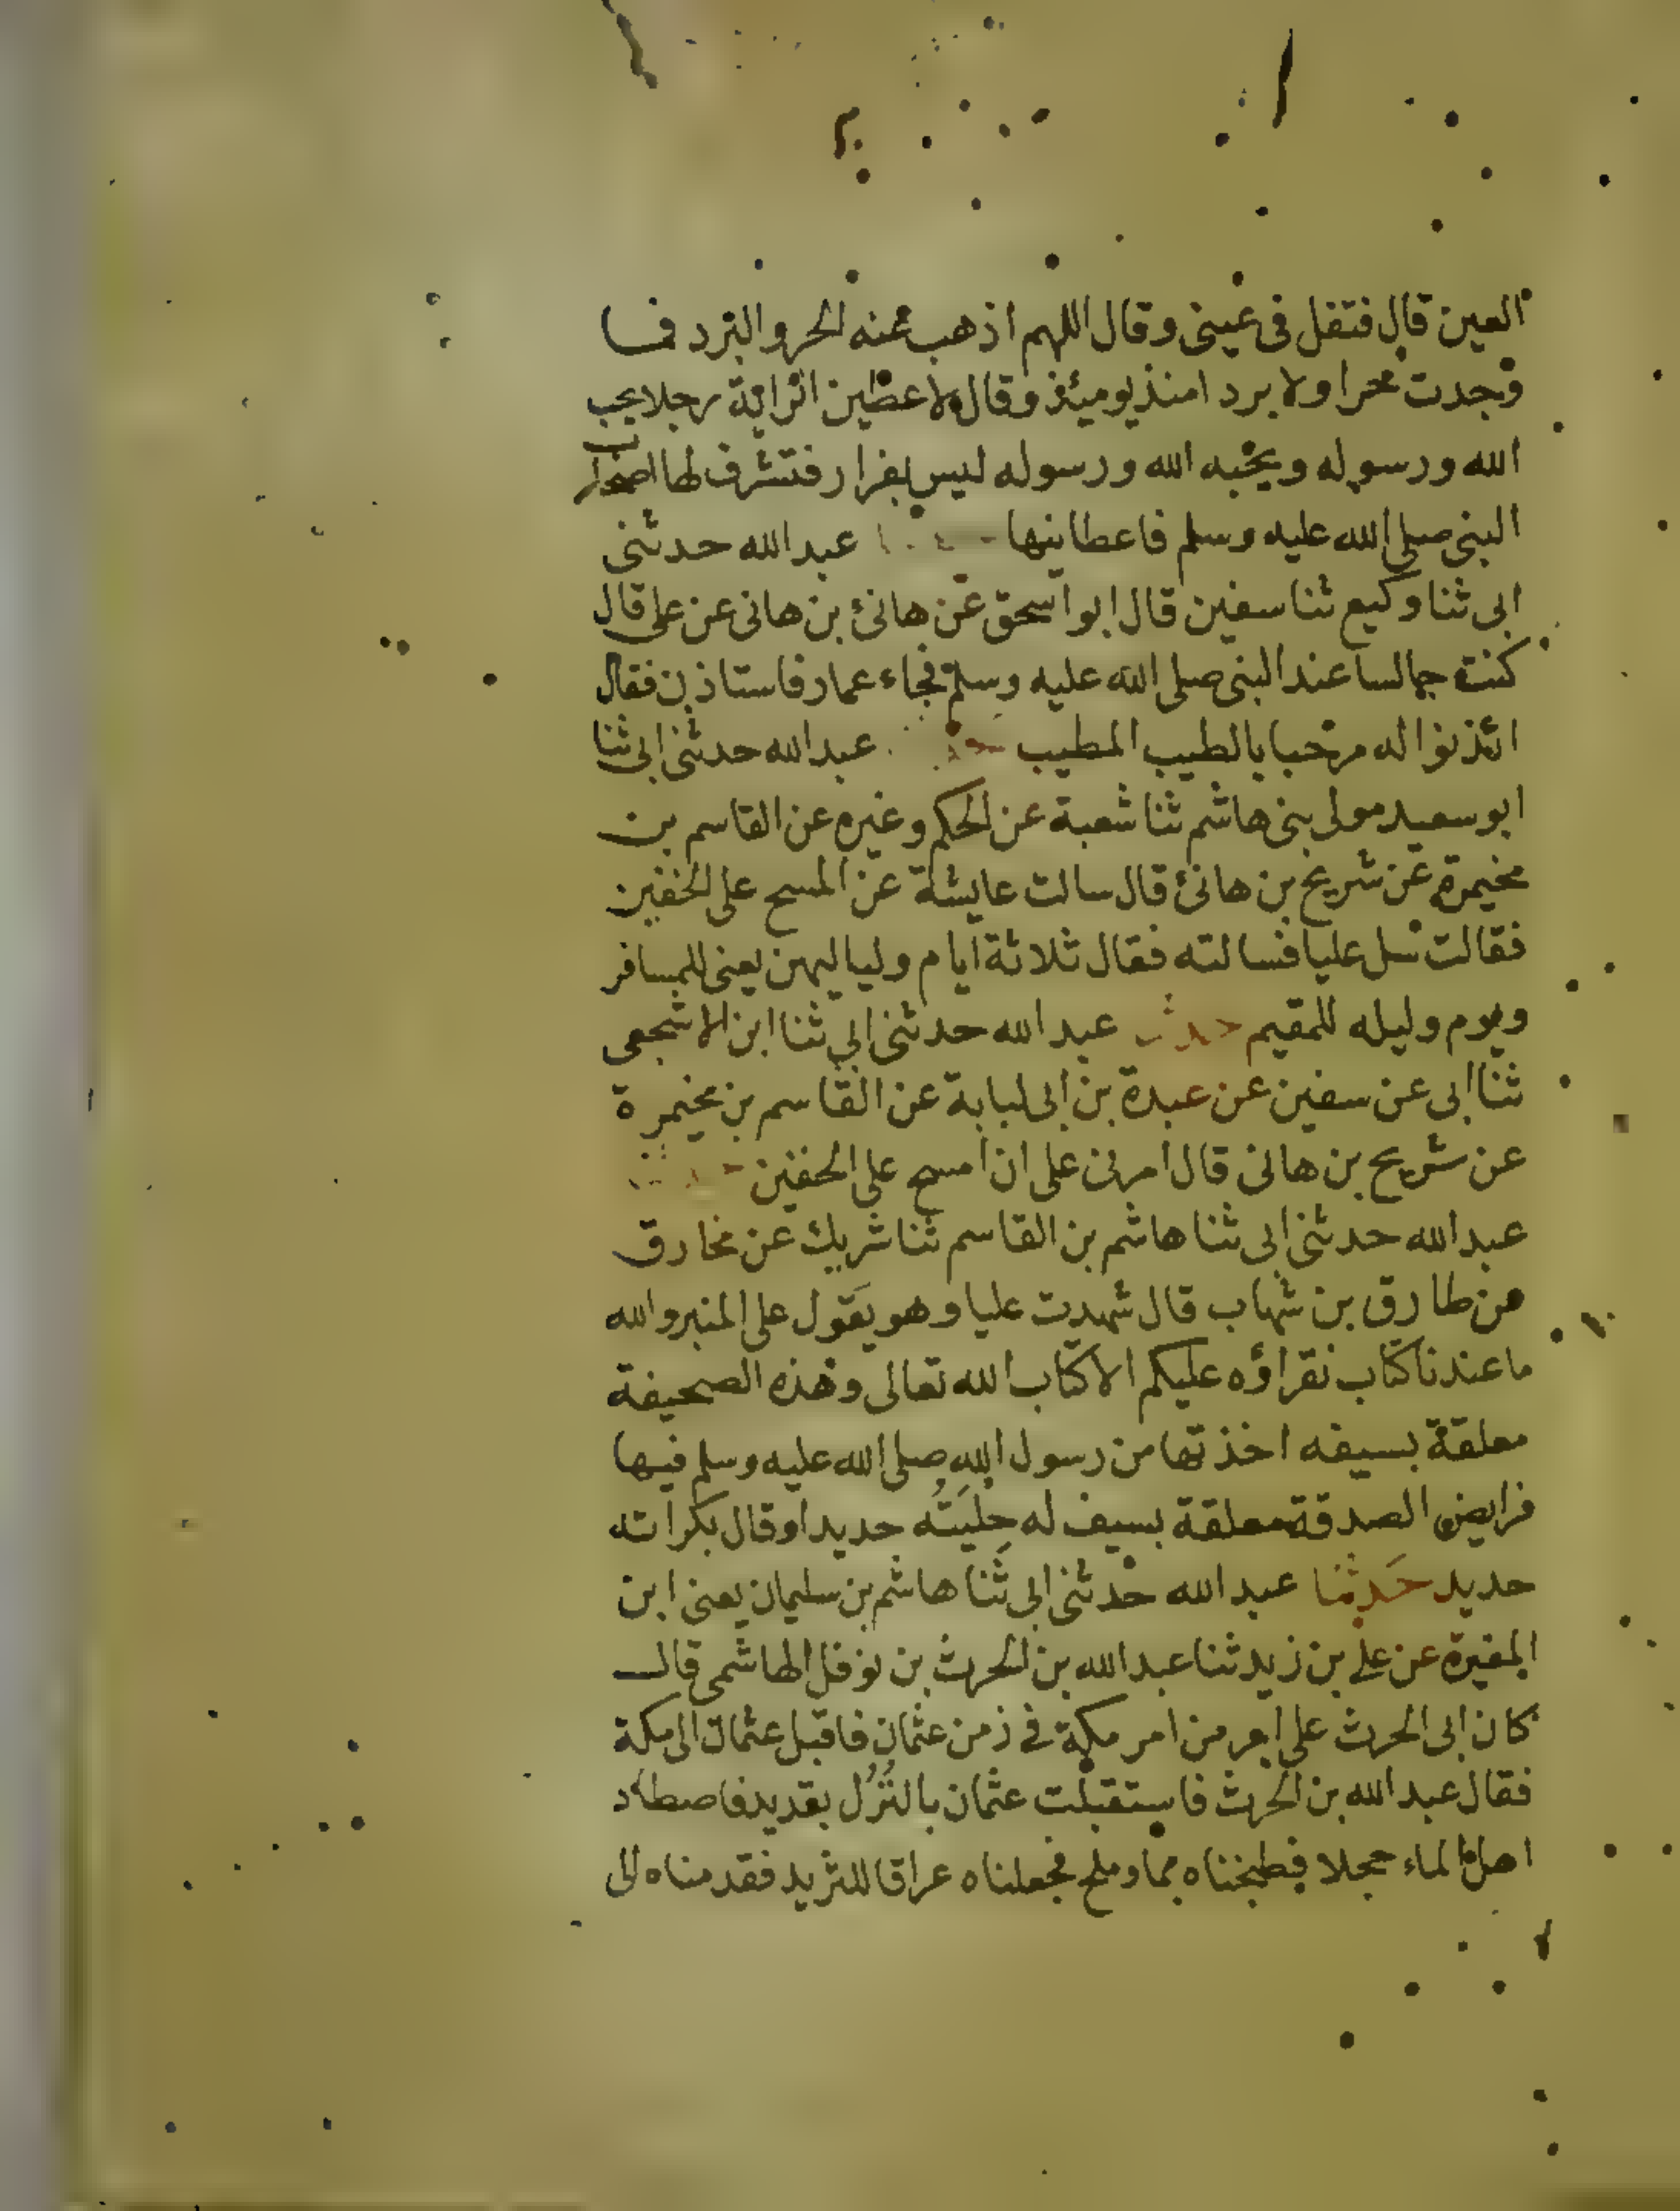 العين قال فتفل فى عينى وقال اللهم اذهب عنه الحر والبرد فما
وجدت حرا ولا بردا منذ يومئذ وقال لاعطين الراية رجلا يحب
الله ورسوله ويحبه الله ورسوله ليس بفرار فتشرف لها اصحاب
النبى صلى الله عليه وسلم فاعطانيها عبدالله حدثنى
ابى ثنا وكيع ثنا سفين قال ابو اسحق عن هانئ بن هانى عن على قال
كنت جالسا عند النبى صلى الله عليه وسلم فجاء عمار فاستاذن فقال
ائذنوا له مرحبا بالطيب المطيب عبدالله حدثنى ابى ثنا
ابو سعيد مولى بنى هاشم ثنا شعبة عن الحكم وغيره عن القاسم بن
مخيمرة عن شريح بن هانئ قال سالت عايشة عن المسح على الخفين
فقالت سل عليا فسالته فقال ثلاثة ايام ولياليهن يعنى للمسافر
ويوم وليله للمقيم حدثنا عبدالله حدثنى ابى ثنا ابن الاشجعى
ثنا ابى عن سفين عن عبدة بن ابى لبابة عن القاسم بن مخيمرة
عن شريح بن هانى قال امرنى على ان امسح على الخفين حدثنا
عبدالله حدثنى ابى ثنا هاشم بن القاسم ثنا شريك عن مخارق
عن طارق بن شهاب قال شهدت عليا وهو يقول على المنبر والله
ما عندنا كتاب نقراؤه عليكم الا كتاب الله تعالى وهذه الصحيفة
معلقة بسيفه اخذتها من رسول الله صلى الله عليه وسلم فيها
فرايض الصدقة معلقة بسيف له حِليَتُه حديد او قال بكراته
حديد حَدثنا عبدالله حدثنى ابى ثنا هاشم بن سليمان يعنى ابن
المغيرة عن على بن زيد ثنا عبدالله بن الحرث بن نوفل الهاشمى قال
كان ابى الحرث على امر من امر مكة فى زمن عثمان فاقبل عثمان الى مكة
فقال عبدالله بن الحرث فاستقبلت عثمان بالنُزُل بقديد فاصطاد
اهل الماء حجلا فطبخناه بما وملح فجعلناه عراقا للثريد فقدمناه الى